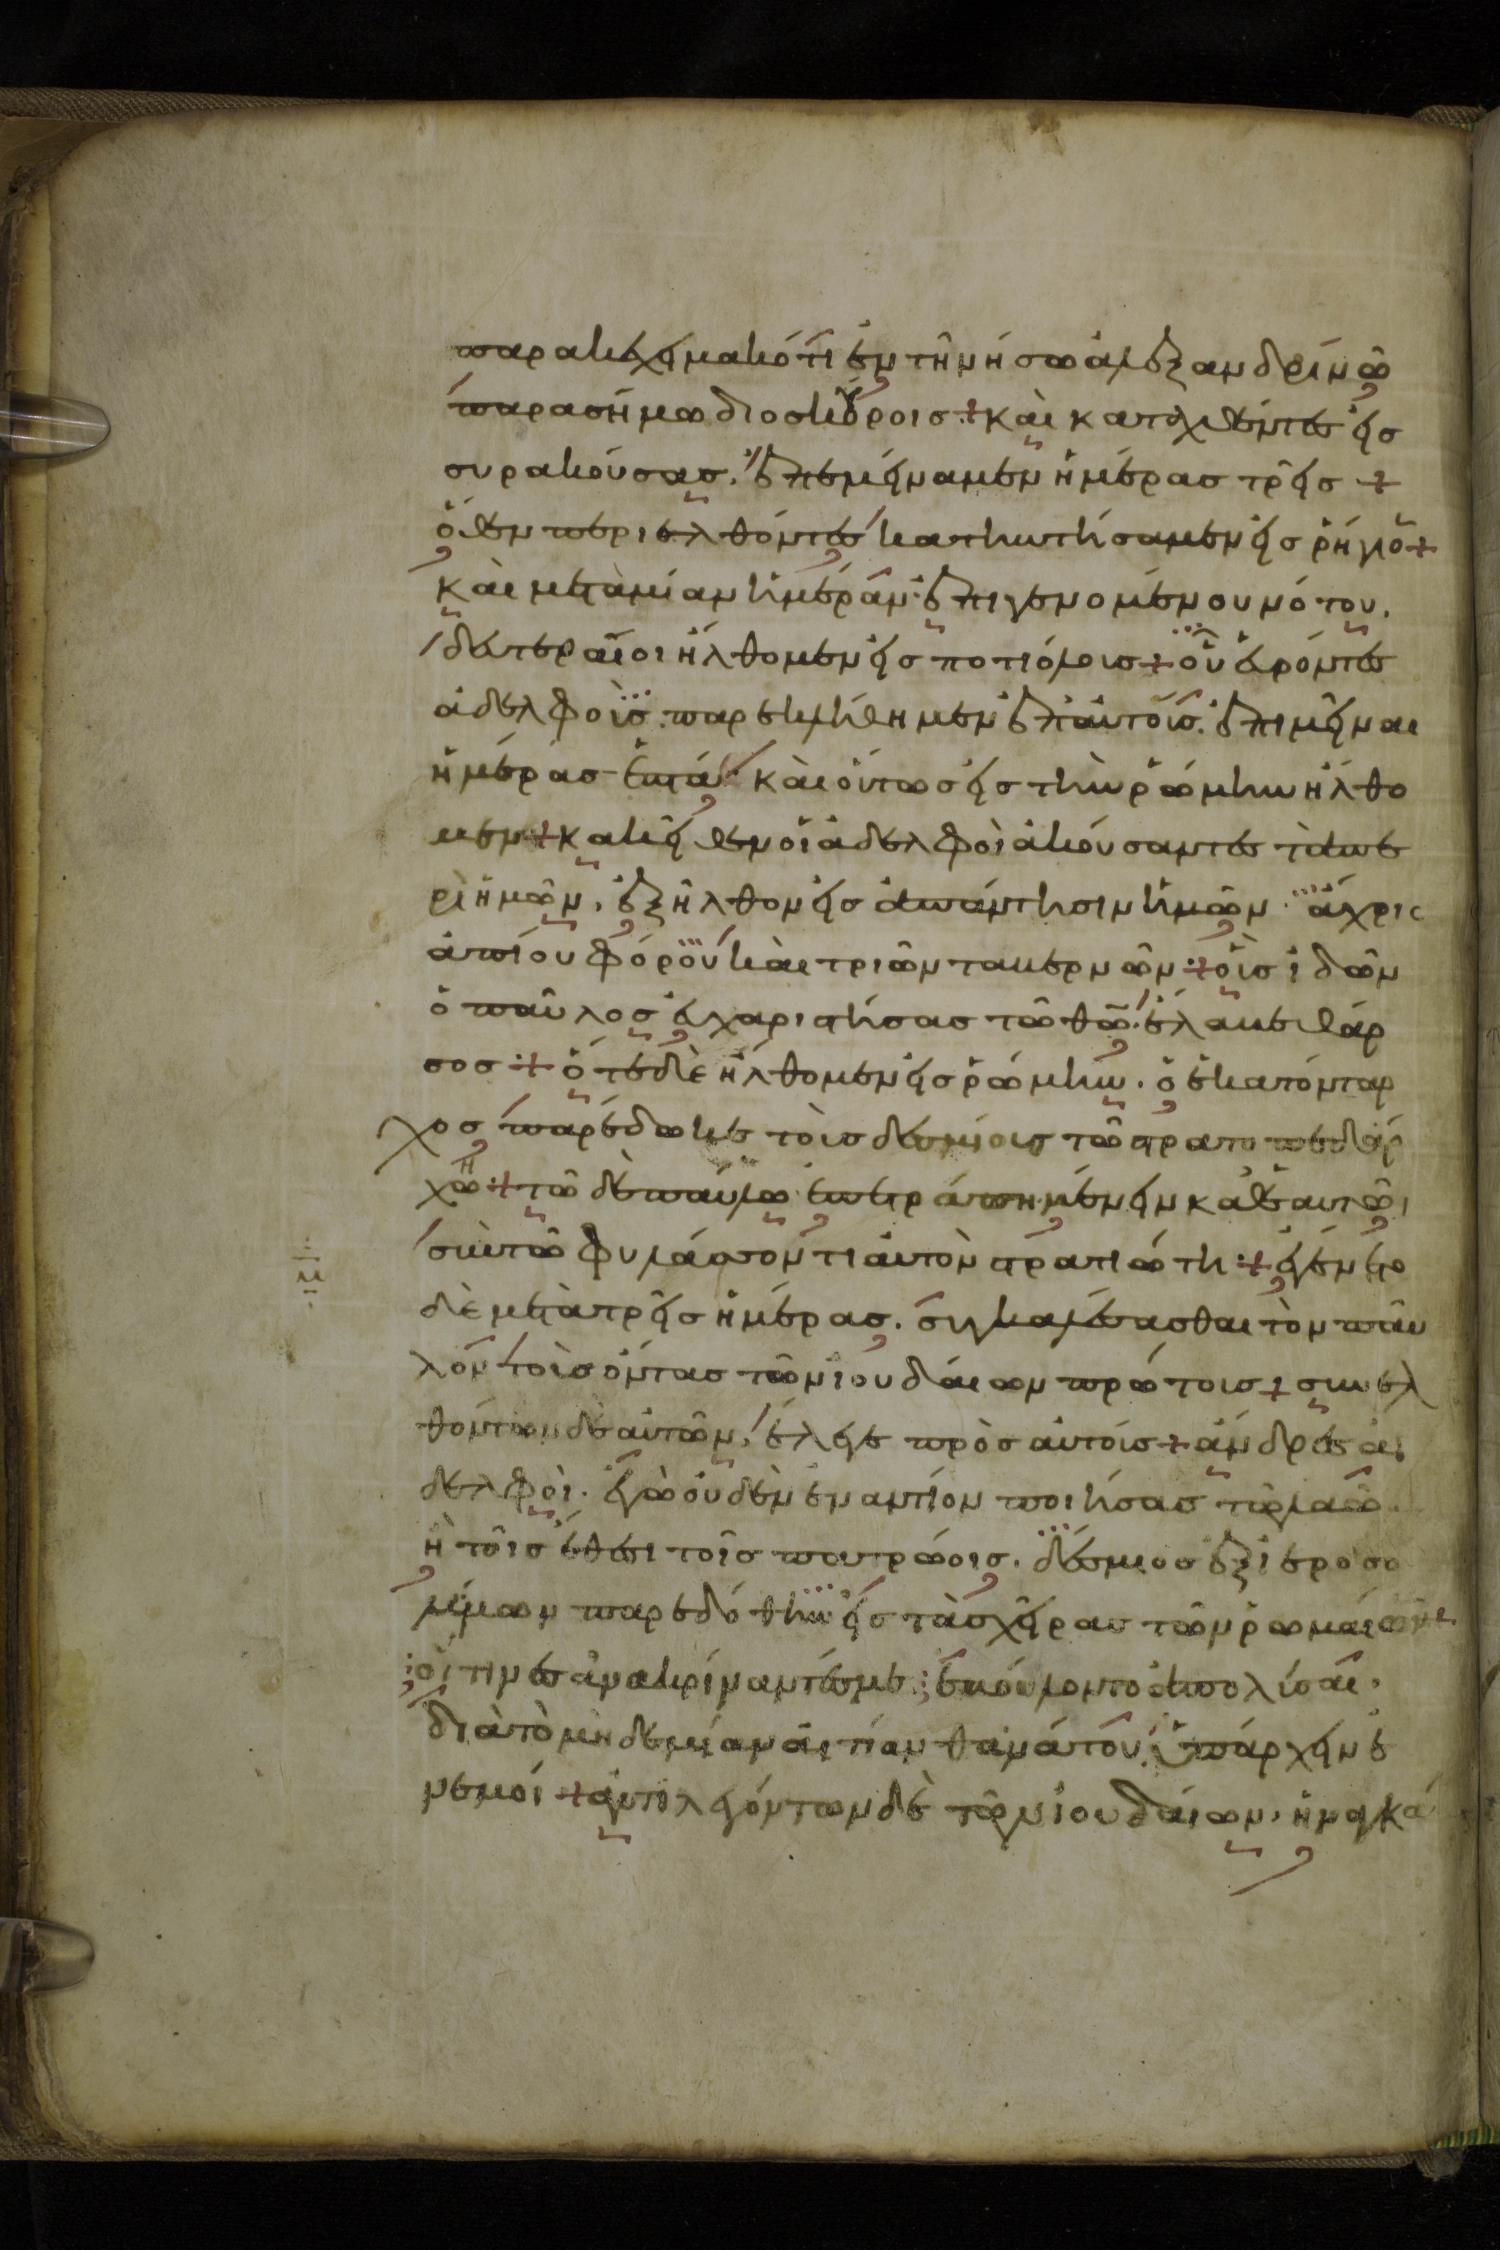 παρακεχειμακότι ἐν τῆ νήσω ἀλεξανδρίνω
παρασήμω διοσκούροις· καὶ καταχθέντες εἰς
συρακούσας. ἐπεμείναμεν ἡμέρας τρεῖς
ὅθεν περιελθόντες κατηντήσαμεν εἰς ῥήγιον
καὶ μετὰ μίαν ἡμέραν· ἐπιγενομένου νότου.
δευτεραῖοι ἤλθομεν εἰς ποτιόλους· οὗ εὑρόντες
ἀδελφοὺς. παρεκλήθημεν ἐπ' αὐτοῖς. ἐπιμεῖναι
ἡμέρας ἑπτά· καὶ οὕτως εἰς τὴν ῥώμην ἤλθο
μεν· κακεῖθεν οἱ ἀδελφοὶ ἀκούσαντες τὰ πε
ρὶ ἡμῶν, ἐξῆλθον εἰς ἀπάντησιν ἡμῶν ἄχρις
ἀππίου φόρου καὶ τριῶν ταβερνῶν· οὓς ἰδὼν
ὁ παῦλος εὐχαριστήσας τῶ θῶ. ἔλαβε θάρ
σος· ὅτε δὲ ἤλθομεν εἰς ῥώμην. ὁ ἑκατόνταρ
χος παρέδωκε τοὺς δεσμίους τῶ στρατοπεδάρ
χω· τῶ δὲ παύλω ἐπετράπη μένειν καθ' ἑαυτὸν
σὺν τῶ φυλάσσοντι αὐτὸν στρατιώτη· ἐγένετο
δὲ μετὰ τρεῖς ἡμέρας. συγκαλέσασθαι τὸν παῦ
λον τοὺς ὄντας τῶν ἰουδαίων πρώτους· συνελ
θόντων δὲ αὐτῶν, ἔλεγε πρὸς αὐτούς· ἄνδρες ἀ
δελφοὶ. ἐγὼ οὐδὲν ἐναντίον ποιήσας τῶ λαῶ.
ἢ τοῖς ἔθεσι τοῖς πατρώοις. δέσμιος ἐξ ἱεροσο
λύμων παρεδόθην εἰς τὰς χεῖρας τῶν ῥωμαίων
οἵτινες ἀνακρίναντές με ἐβούλοντο ἀπολῦσαι.
διὰ τὸ μηδεμίαν αἰτίαν θανάτου ὑπάρχειν ἐ
ν ἐμοί· ἀντιλεγόντων δὲ τῶν ἰουδαίων, ἠναγκά